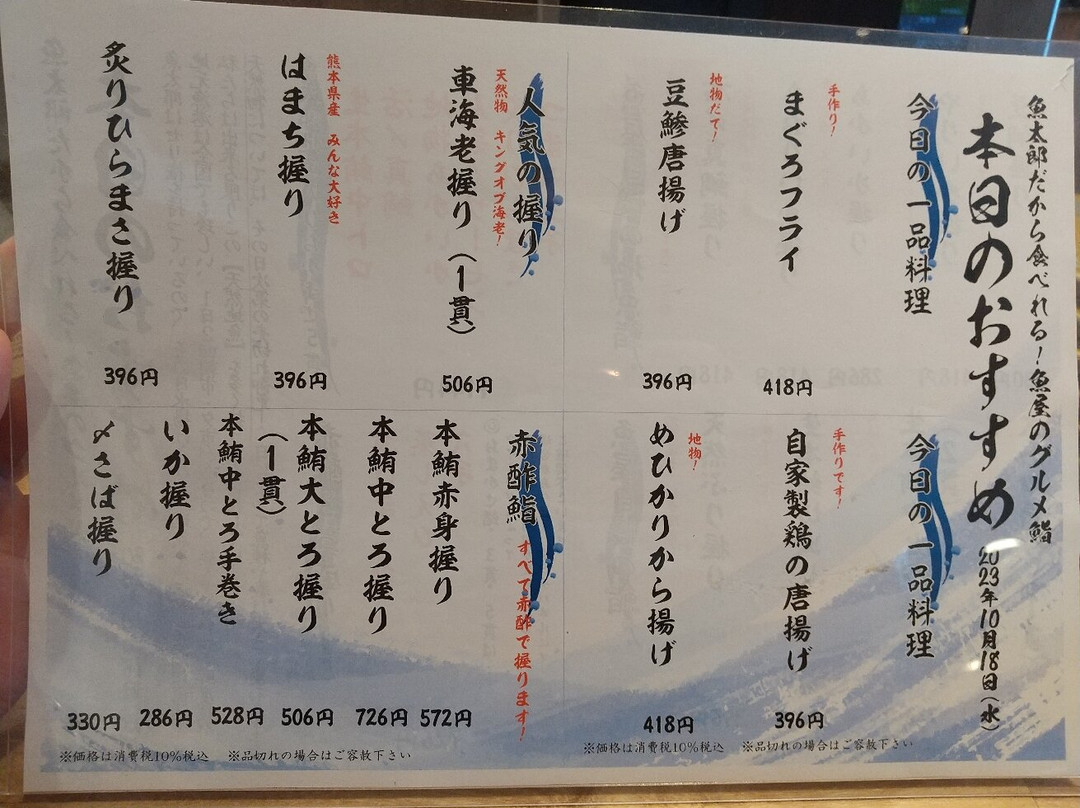 魚太郎だから食べれる！魚屋のグルメ鮨
本日のおすすめ
2023年10月18日（水）
今日の一品料理
手作り！
まぐろフライ
418円
地物だて！
豆鯵唐揚げ
396円
人気の握り
天然物 キングオブ海老！
車海老握り（1貫）
506円
熊本県産 みんな大好き
はまち握り
396円
炙りひらまさ握り
396円
今日の一品料理
手作りです！
自家製鶏の唐揚げ
396円
地物！
めひかりから揚げ
418円
※価格は消費税10%税込 ※品切れの場合はご容赦下さい
赤酢鮨
すべて赤酢で握ります！
本鮪赤身握り
572円
本鮪中とろ握り
726円
本鮪大とろ握り
（1貫）
506円
本鮪中とろ手巻き
528円
いか握り
286円
〆さば握り
330円
※価格は消費税10%税込 ※品切れの場合はご容赦下さい